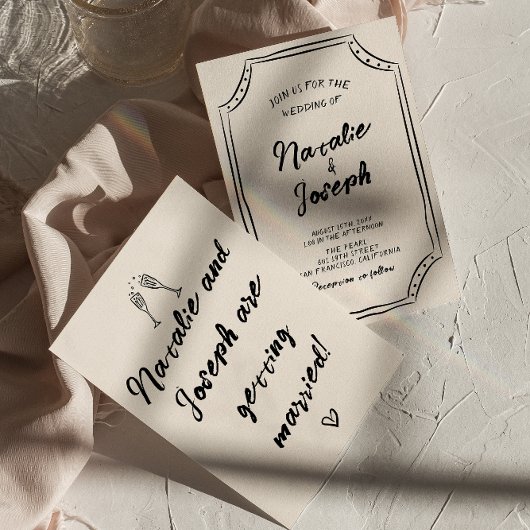 JOIN US FOR THE
WEDDING OF
Natalie
&
Joseph
AUGUST 15TH, 20XX
IN THE AFTERNOON
THE PEARL
19TH STREET
SAN FRANCISCO, CALIFORNIA
Reception to follow
Natalie and
Joseph are
getting
married!